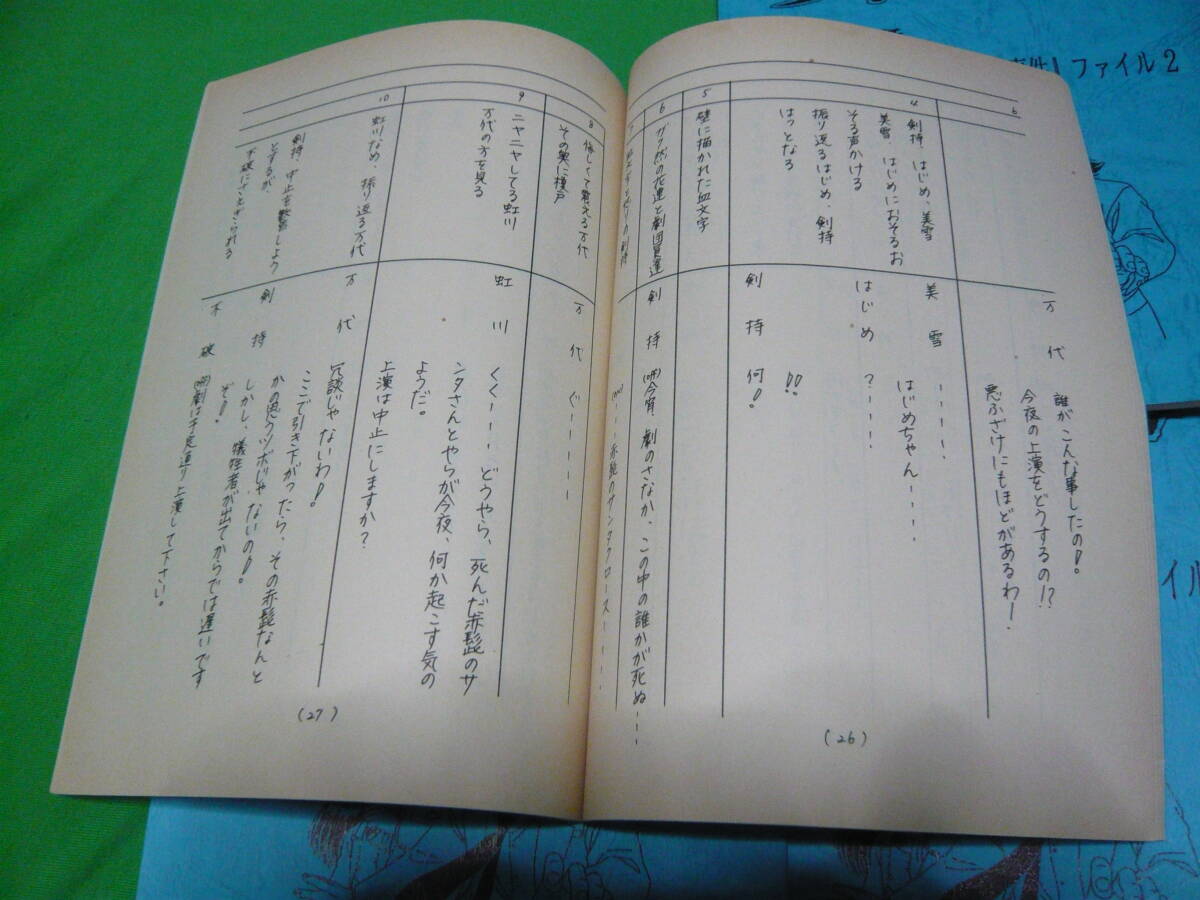 事件 ファイル2
イル
6
万代
誰がこんな事したの!
今夜の上演をどうするの!?
悪ふざけにもほどがあるわー!
4
剣持、はじめ、美雪
美雪、はじめにおそるお
そる声かける
振り返るはじめ、剣持
はっとなる
美雪
…………
はじめちゃん…………
はじめ
?…………
!!
剣持
何!
5
壁に描かれた血文字
6
ガク然の花蓮と劇団員達
剣持
今宵、劇のさなか、この中の誰かが死ぬ………
7
赤髭のサンタクロース…………
(26)
8
悔しくて震える万代
その奥に横戸
万代
ぐ……………
9
ニヤニヤしてる虹川
万代の方を見る
虹川
くく………どうやら、死んだ赤髭のサ
ンタさんとやらが今夜、何か起こす気の
ようだ。
上演は中止にしますか?
10
虹川なめ、振り返る万代
万代
冗談じゃないわ!
ここで引き下がったら、その赤髭なんと
かの思うツボじゃないの!
剣持、中止を警告しよう
とするが、
不破にさえぎられる
剣持
しかし、犠牲者が出てからでは遅いです
ぞ!
不破
劇は予定通り上演して下さい。
(27)